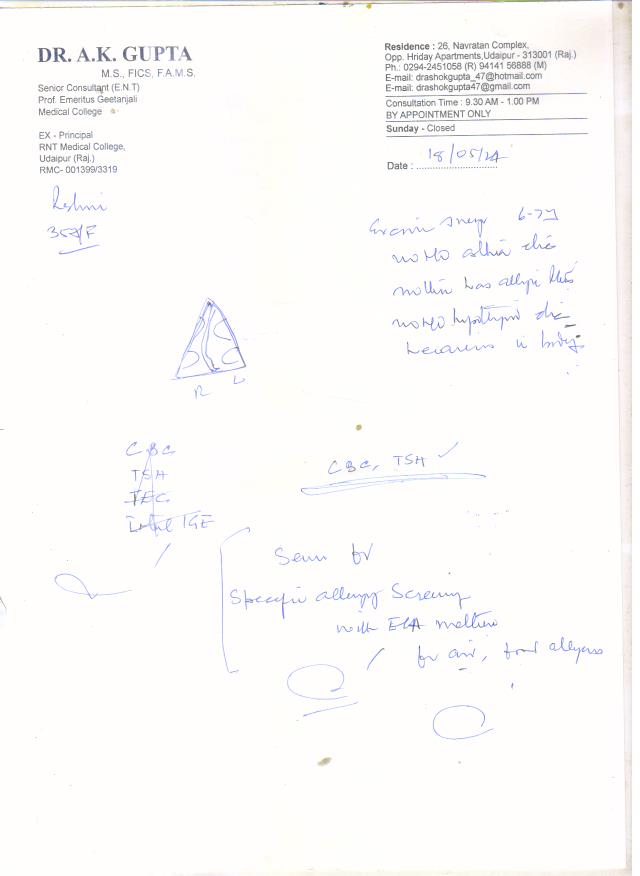 DR. A.K. GUPTA
M.S., FICS, F.A.M.S.
Senior Consultant (E.N.T)
Prof. Emeritus Geetanjali
Medical College
EX - Principal
RNT Medical College,
Udaipur (Raj.)
RMC- 001399/3319
Residence : 26, Navratan Complex,
Opp. Hriday Apartments,Udaipur - 313001 (Raj.)
Ph.: 0294-2451058 (R) 94141 56888 (M)
E-mail: drashokgupta_47@hotmail.com
E-mail: drashokgupta47@gmail.com
Consultation Time : 9.30 AM - 1.00 PM
BY APPOINTMENT ONLY
Sunday - Closed
Date : 18/05/24
35y/F
6-7y
no H/O
has
no H/O
in body
R L
CBC
TSH
TEC
Total IGE
CBC, TSH
Serum for
Specific allergy Screening
with
for air, food allergens